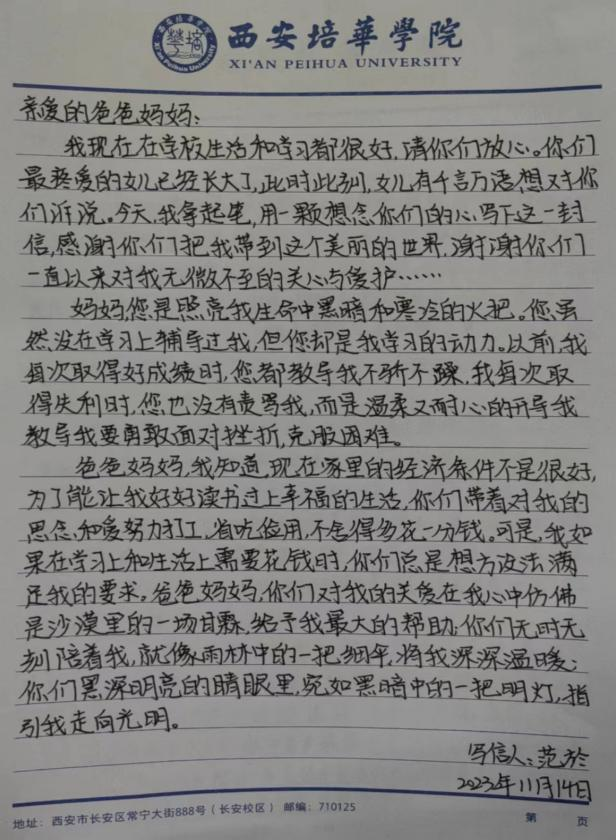 西安培華學院
XI'AN PEIHUA UNIVERSITY
亲爱的爸爸妈妈：
我现在在学校生活和学习都很好，请你们放心。你们
最疼爱的女儿已经长大了，此时此刻，女儿有千言万语想对你
们诉说。今天，我拿起笔，用一颗想念你们的心写下这一封
信，感谢你们把我带到这个美丽的世界，谢谢你们
一直以来对我无微不至的关心与爱护……
妈妈，您是照亮我生命中黑暗和寒冷的火把。您虽
然没在学习上辅导过我，但您却是我学习的动力。以前，我
每次取得好成绩时，您都教导我不骄不躁，我每次取
得失利时，您也没有责骂我，而是温柔又耐心的开导我
教导我要勇敢面对挫折，克服困难。
爸爸妈妈，我知道现在家里的经济条件不是很好，
为了能让我好好读书过上幸福的生活，你们带着对我的
思念和爱努力打工，省吃俭用，不舍得多花一分钱。可是，我如
果在学习上和生活上需要花钱时，你们总是想方设法满
足我的要求。爸爸妈妈，你们对我的关爱在我心中仿佛
是沙漠里的一场甘霖，给予我最大的帮助；你们无时无
刻陪着我，就像雨林中的一把细伞，将我深深温暖；
你们黑深明亮的睛眼里，宛如黑暗中的一把明灯，指
引我走向光明。
写信人：范於
2023年11月14日
地址：西安市长安区常宁大街888号（长安校区） 邮编：710125
第 页